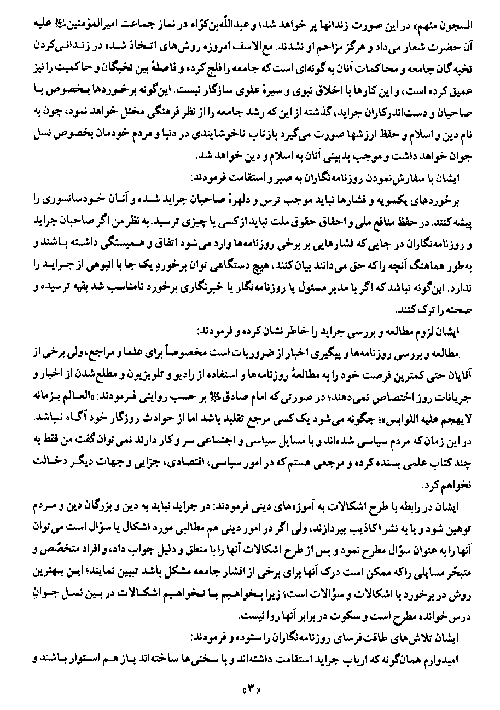 السجون منهم»، در این صورت زندانها پر خواهد شد؛ و عبداللّه‌بن‌کوّاء در نماز جماعت امیرالمؤمنین علیه
آن حضرت شعار می‌داد و هرگز مزاحم او نشدند. مع‌الاسف امروزه روش‌های اتخاذ شده در زندانی‌کردن
نخبه‌گان جامعه و محاکمات آنان به گونه‌ای است که جامعه را فلج کرده و فاصلهٔ بین نخبگان و حاکمیت را نیز
عمیق کرده است، و این کارها با اخلاق نبوی و سیرهٔ علوی سازگار نیست. این‌گونه برخوردها بخصوص با
صاحبان و دست‌اندرکاران جراید، گذشته از این که رشد جامعه را از نظر فرهنگی مختل خواهد نمود، چون به
نام دین و اسلام و حفظ ارزشها صورت می‌گیرد بازتاب ناخوشایندی در دنیا و مردم خودمان بخصوص نسل
جوان خواهد داشت و موجب بدبینی آنان به اسلام و دین خواهد شد.
ایشان با سفارش‌نمودن روزنامه‌نگاران به صبر و استقامت فرمودند:
برخوردهای یکسویه و فشارها نباید موجب ترس و دلهرهٔ صاحبان جراید شده و آنان خودسانسوری را
پیشه کنند. در حفظ منافع ملی و احقاق حقوق ملت نباید از کسی یا چیزی ترسید. به نظر من اگر صاحبان جراید
و روزنامه‌نگاران در جایی که فشارهایی بر برخی روزنامه‌ها وارد می‌شود اتفاق و همبستگی داشته باشند و
به‌طور هماهنگ آنچه را که حق می‌دانند بیان کنند، هیچ دستگاهی توان برخورد یک جا با انبوهی از جراید را
ندارد. این‌گونه نباشد که اگر با مدیر مسئول یا روزنامه‌نگار یا خبرنگاری برخورد نامناسب شد بقیه ترسیده و
صحنه را ترک کنند.
ایشان لزوم مطالعه و بررسی جراید را خاطر نشان کرده و فرمودند:
مطالعه و بررسی روزنامه‌ها و پیگیری اخبار از ضروریات است مخصوصاً برای علما و مراجع، ولی برخی از
آقایان حتی کمترین فرصت خود را به مطالعهٔ روزنامه‌ها و استفاده از رادیو و تلویزیون و مطلع‌شدن از اخبار و
جریانات روز اختصاص نمی‌دهند؛ در صورتی که امام صادق بر حسب روایتی فرمودند: «العالم بزمانه
لا یهجم علیه اللوابس»؛ چگونه می‌شود یک کسی مرجع تقلید باشد اما از حوادث روزگار خود آگاه نباشد.
در این زمان که مردم سیاسی شده‌اند و با مسایل سیاسی و اجتماعی سر و کار دارند نمی‌توان گفت من فقط به
چند کتاب علمی بسنده کرده و مرجعی هستم که در امور سیاسی، اقتصادی، جزایی و جهات دیگر دخالت
نخواهم کرد.
ایشان در رابطه با طرح اشکالات به آموزه‌های دینی فرمودند: در جراید نباید به دین و بزرگان دین و مردم
توهین شود و یا به نشر اکاذیب بپردازند، ولی اگر در امور دینی هم مطالبی مورد اشکال یا سؤال است می‌توان
آنها را به عنوان سؤال مطرح نمود و پس از طرح اشکالات آنها را با منطق و دلیل جواب داد، و افراد متخصّص و
متبحّر مسایلی را که ممکن است درک آنها برای برخی از اقشار جامعه مشکل باشد تبیین نمایند؛ این بهترین
روش در برخورد با اشکالات و سؤالات است؛ زیرا بخواهیم یا نخواهیم اشکالات در بین نسل جوان
درس‌خوانده مطرح است و سکوت در برابر آنها روا نیست.
ایشان تلاش‌های طاقت‌فرسای روزنامه‌نگاران را ستوده و فرمودند:
امیدوارم همان‌گونه که ارباب جراید استقامت داشته‌اند و با سختی‌ها ساخته‌اند باز هم استوار باشند و
«۳»